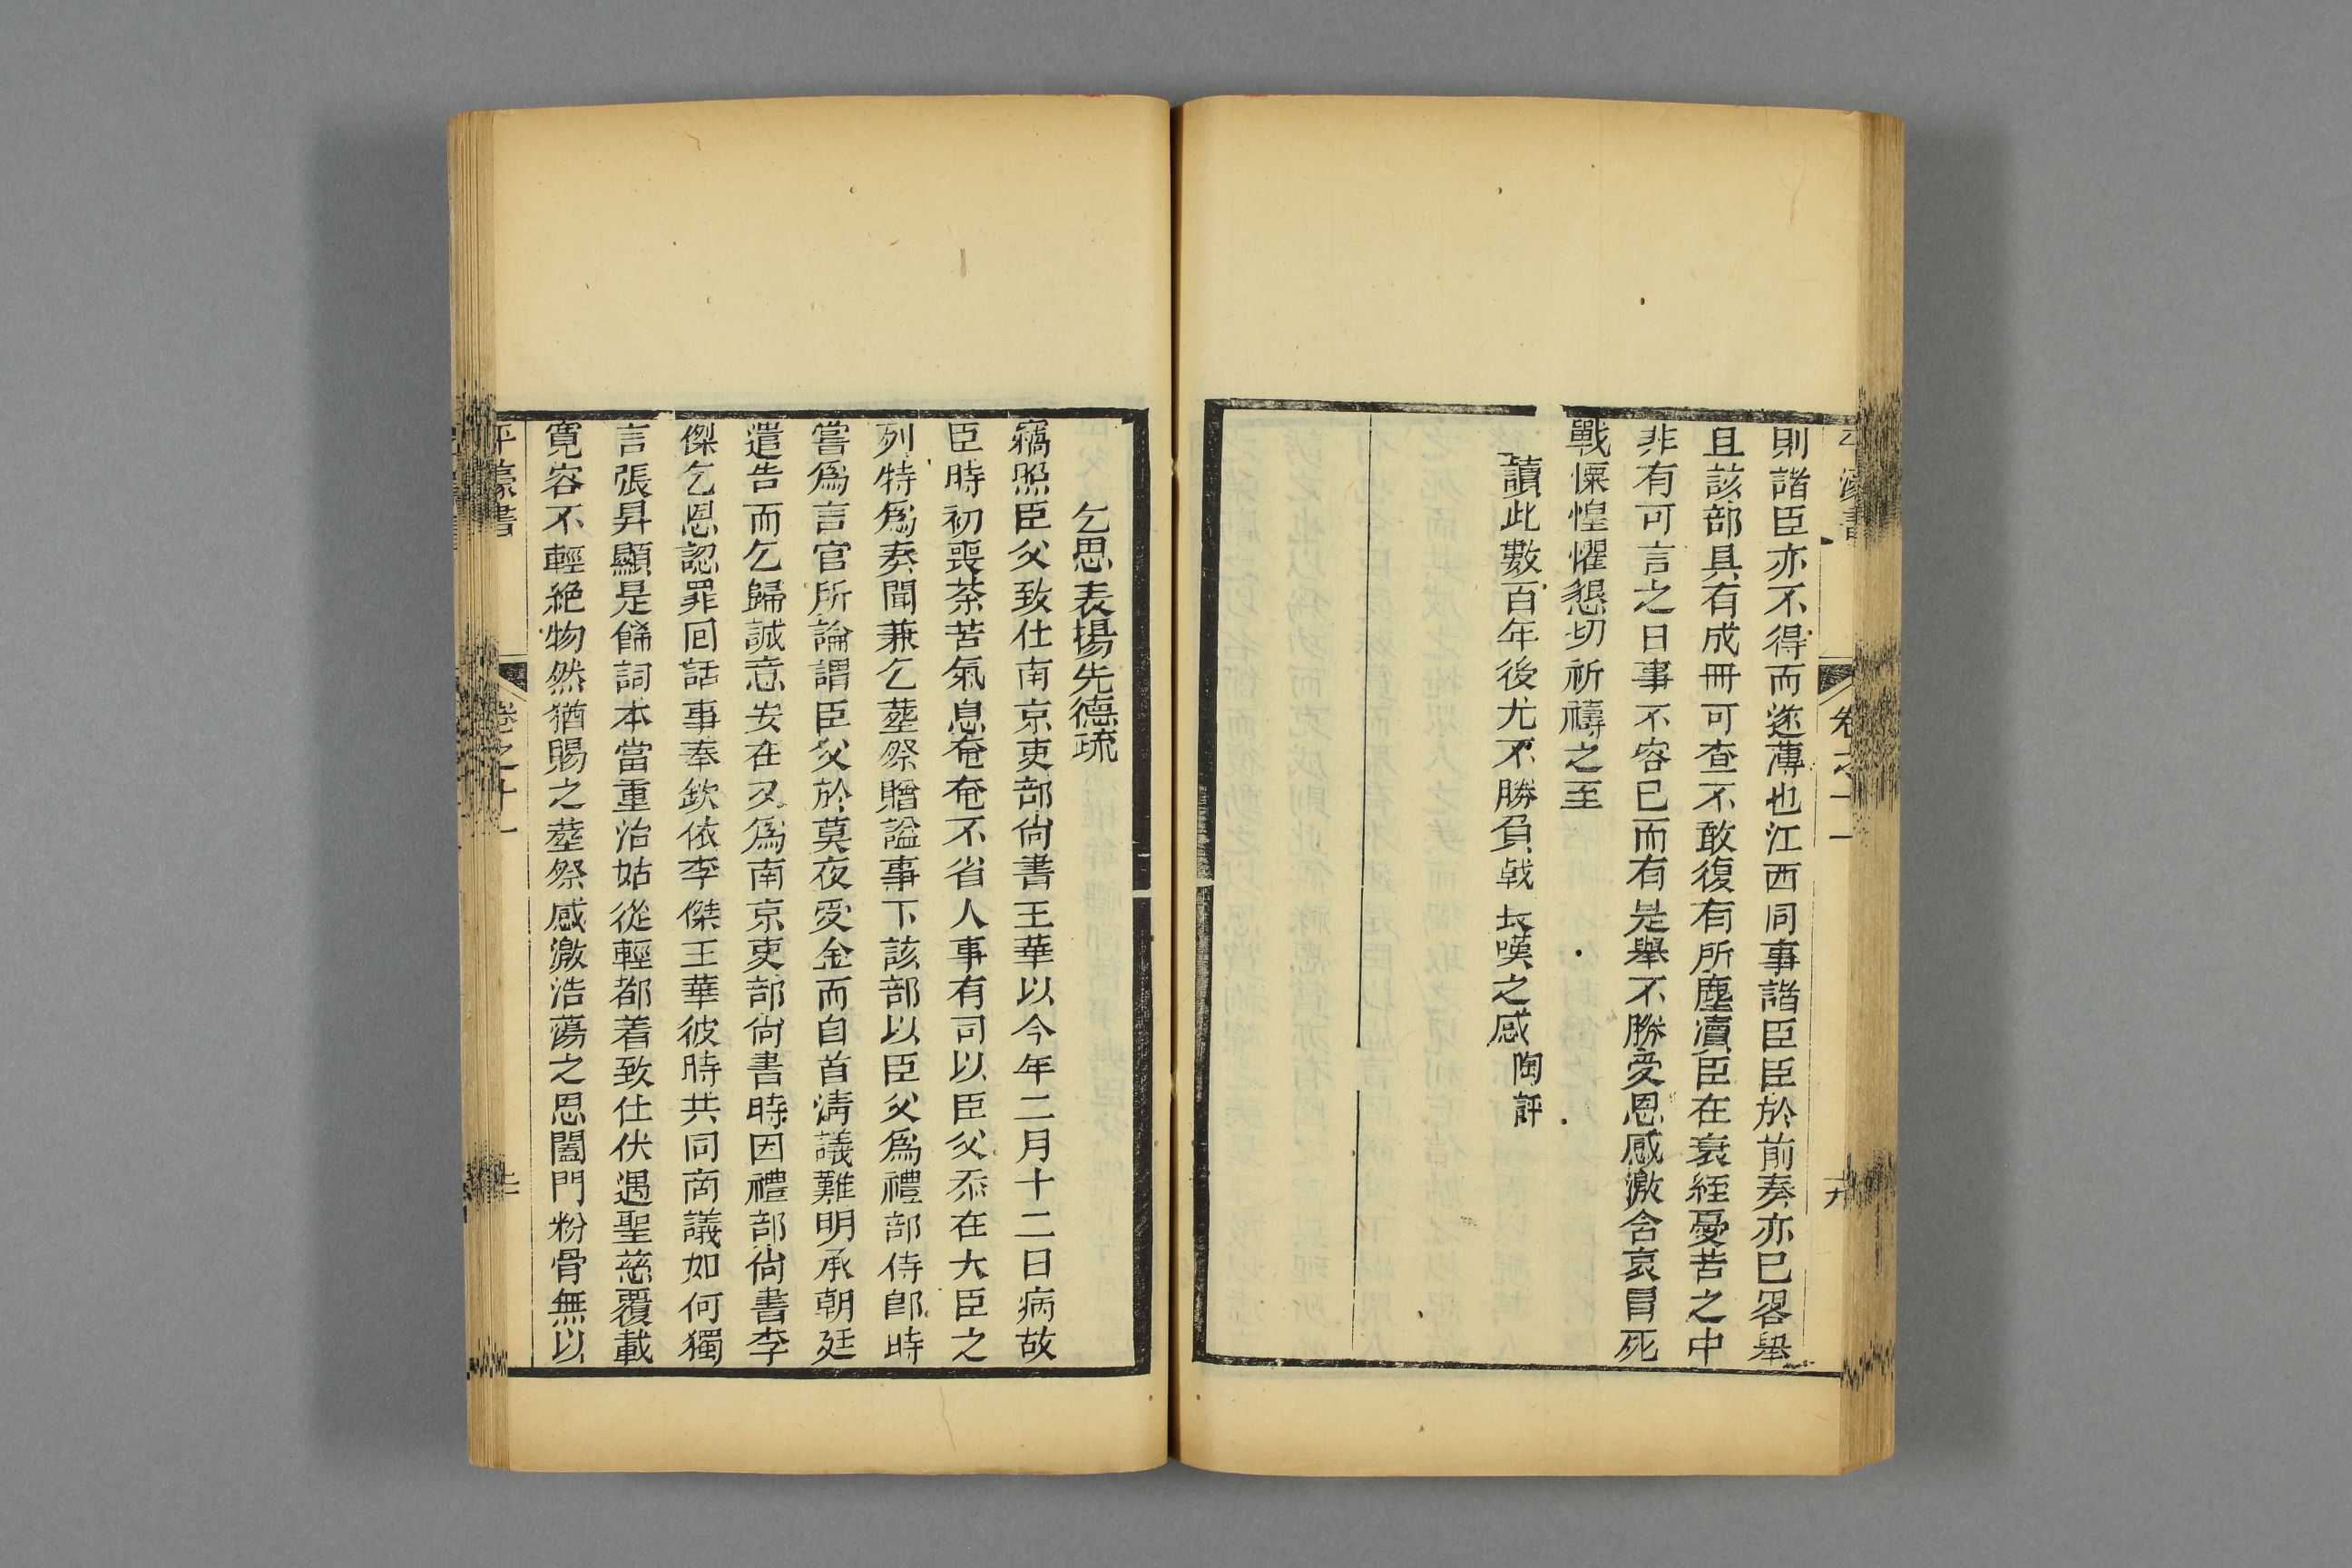 則諸臣亦不得而遂薄也江西同事諸臣臣於前奏亦已畧舉
且該部具有成冊可查不敢復有所塵瀆臣在衰絰憂苦之中
非有可言之日事不容已而有是舉不勝受恩感激含哀冒死
戰慄惶懼懇切祈禱之至
讀此數百年後尤不勝負戟長嘆之感陶評
乞恩表揚先德疏
竊照臣父致仕南京吏部尙書王華以今年二月十二日病故
臣時初喪荼苦氣息奄奄不省人事有司以臣父忝在大臣之
列特爲奏聞兼乞塟祭贈諡事下該部以臣父爲禮部侍郎時
嘗爲言官所論謂臣父於莫夜受金而自首淸議難明承朝廷
遣告而乞歸誠意安在又爲南京吏部尙書時因禮部尙書李
傑乞恩認罪回話事奉欽依李傑王華彼時共同商議如何獨
言張昇顯是餙詞本當重治姑從輕都着致仕伏遇聖慈覆載
寬容不輕絶物然猶賜之塟祭感激浩蕩之恩闔門粉骨無以
卷之十一